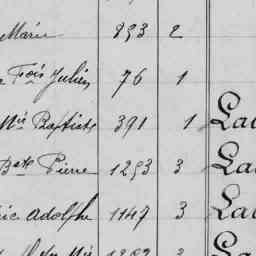 Marie 893 2
fois Julien 76 1
Nie Baptiste 391 1 La
Bste Pierre 1253 3 La
ric Adolphe 1147 3 La
3 La